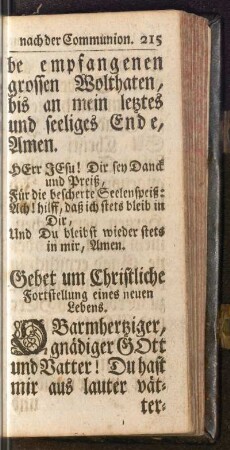 nach der Communion. 215
be empfangenen
grossen Wolthaten,
bis an mein letztes
und seeliges Ende,
Amen.
HErr JEsu! Dir sey Danck
und Preiß,
Für die bescherte Seelenspeiß:
Ach! hilff, daß ich stets bleib in
Dir,
Und Du bleibst wieder stets
in mir, Amen.
Gebet um Christliche
Fortstellung eines neuen
Lebens.
O Barmhertziger,
gnädiger GOtt
und Vatter! Du hast
mir aus lauter vät-
ter-